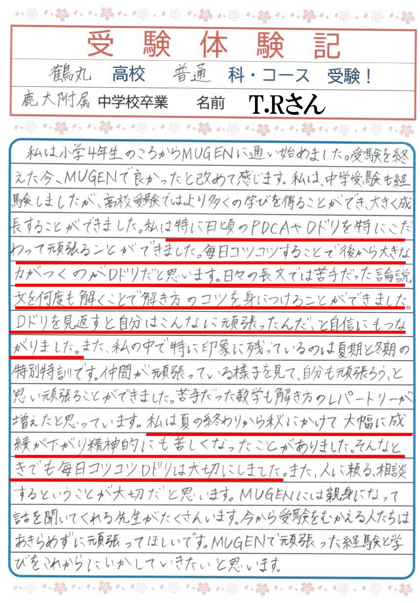 受験体験記
鶴丸 高校 普通 科・コース 受験！
鹿大附属 中学校卒業 名前 T.Rさん
私は小学4年生のころからMUGENに通い始めました。受験を終
えた今、MUGENで良かったと改めて感じます。私は、中学受験も経
験しましたが、高校受験ではより多くの学びを得ることができ、大きく成
長することができました。私は特に日頃のPDCAやDドリを特にこだ
わって頑張ることができました。毎日コツコツすることで後から大きな
力がつくのがDドリだと思います。日々の長文では苦手だった論説
文を何度も解くことで解き方のコツを身につけることができました。
Dドリを見返すと自分はこんなに頑張ったんだ、と自信にもつな
がりました。また、私の中で特に印象に残っているのは夏期と冬期の
特別特訓です。仲間が頑張っている様子を見て、自分も頑張ろう、と
思い頑張ることができました。苦手だった数学も解き方のレパートリーが
増えたと思っています。私は夏の終わりから秋にかけて大幅に成
績が下がり精神的にも苦しくなったことがありました。そんなと
きでも毎日コツコツDドリは大切にしました。また、人に頼る、相談
するということが大切だと思います。MUGENには親身になって
話を聞いてくれる先生がたくさんいます。今から受験をむかえる人たちは
あきらめずに頑張ってほしいです。MUGENで頑張った経験と学
びをこれからにいかしていきたいと思います。